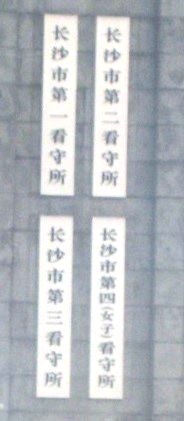 长沙市第一看守所
长沙市第二看守所
长沙市第三看守所
长沙市第四(女子)看守所